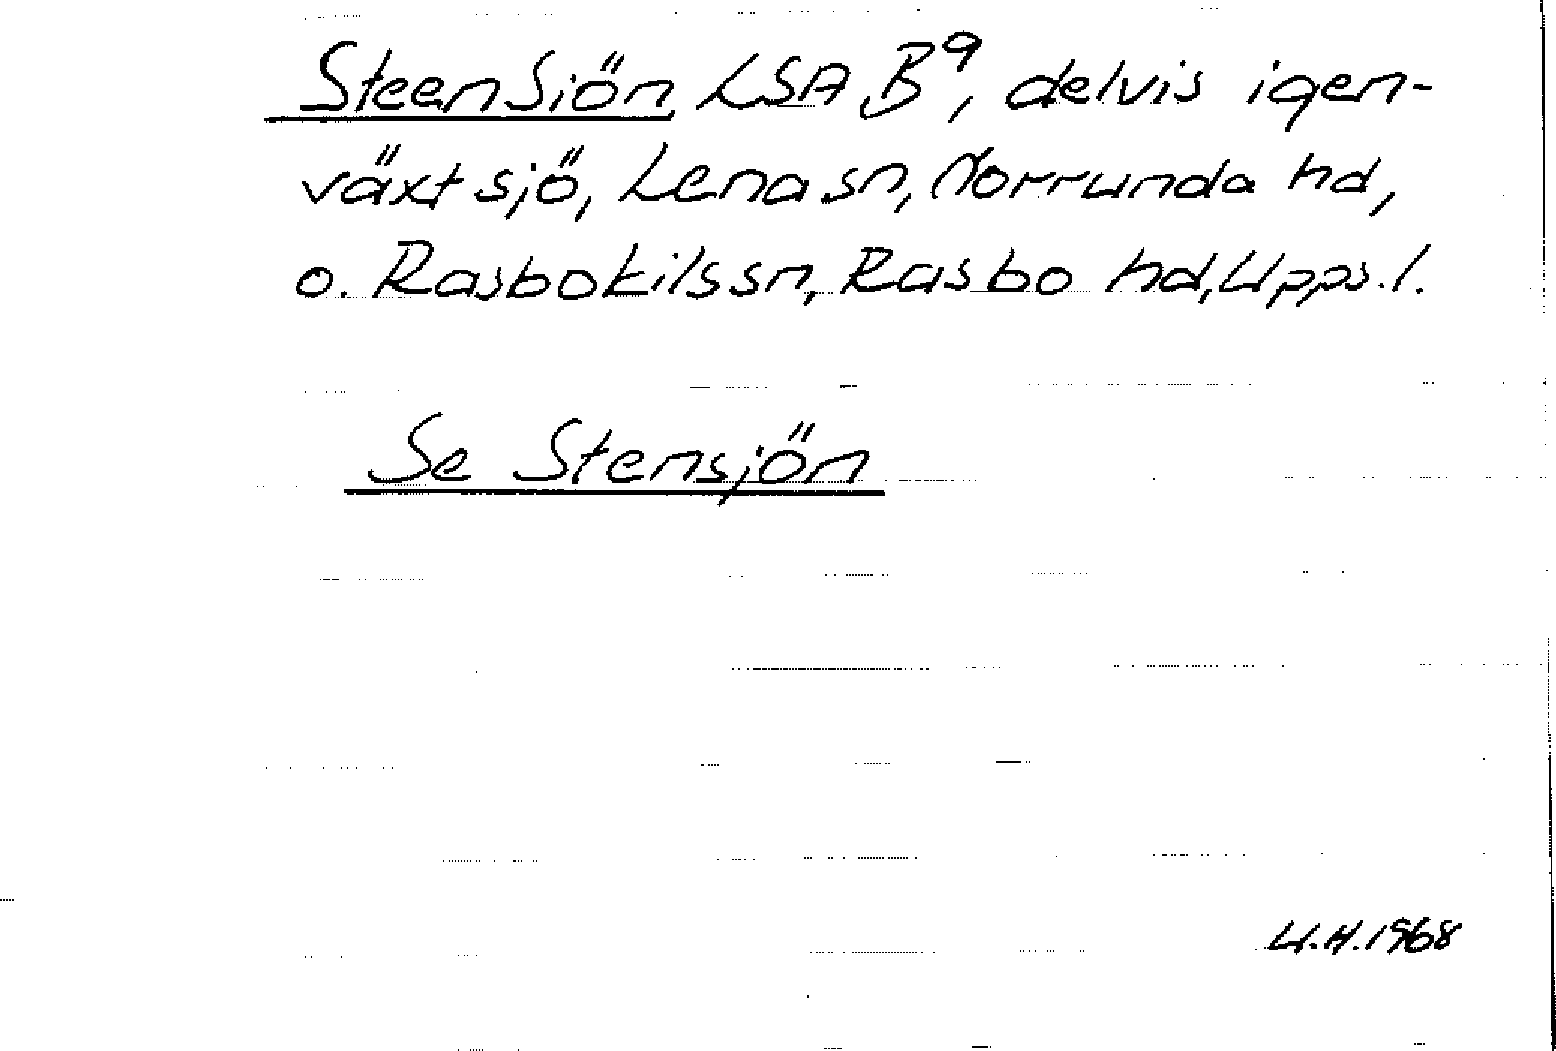 Steensiön LSA B9, delvis igen-
växt sjö, Lena sn, Norrunda hd,
o. Rasbokils sn, Rasbo hd, Upps. l.
Se Stensjön
U.H. 1968